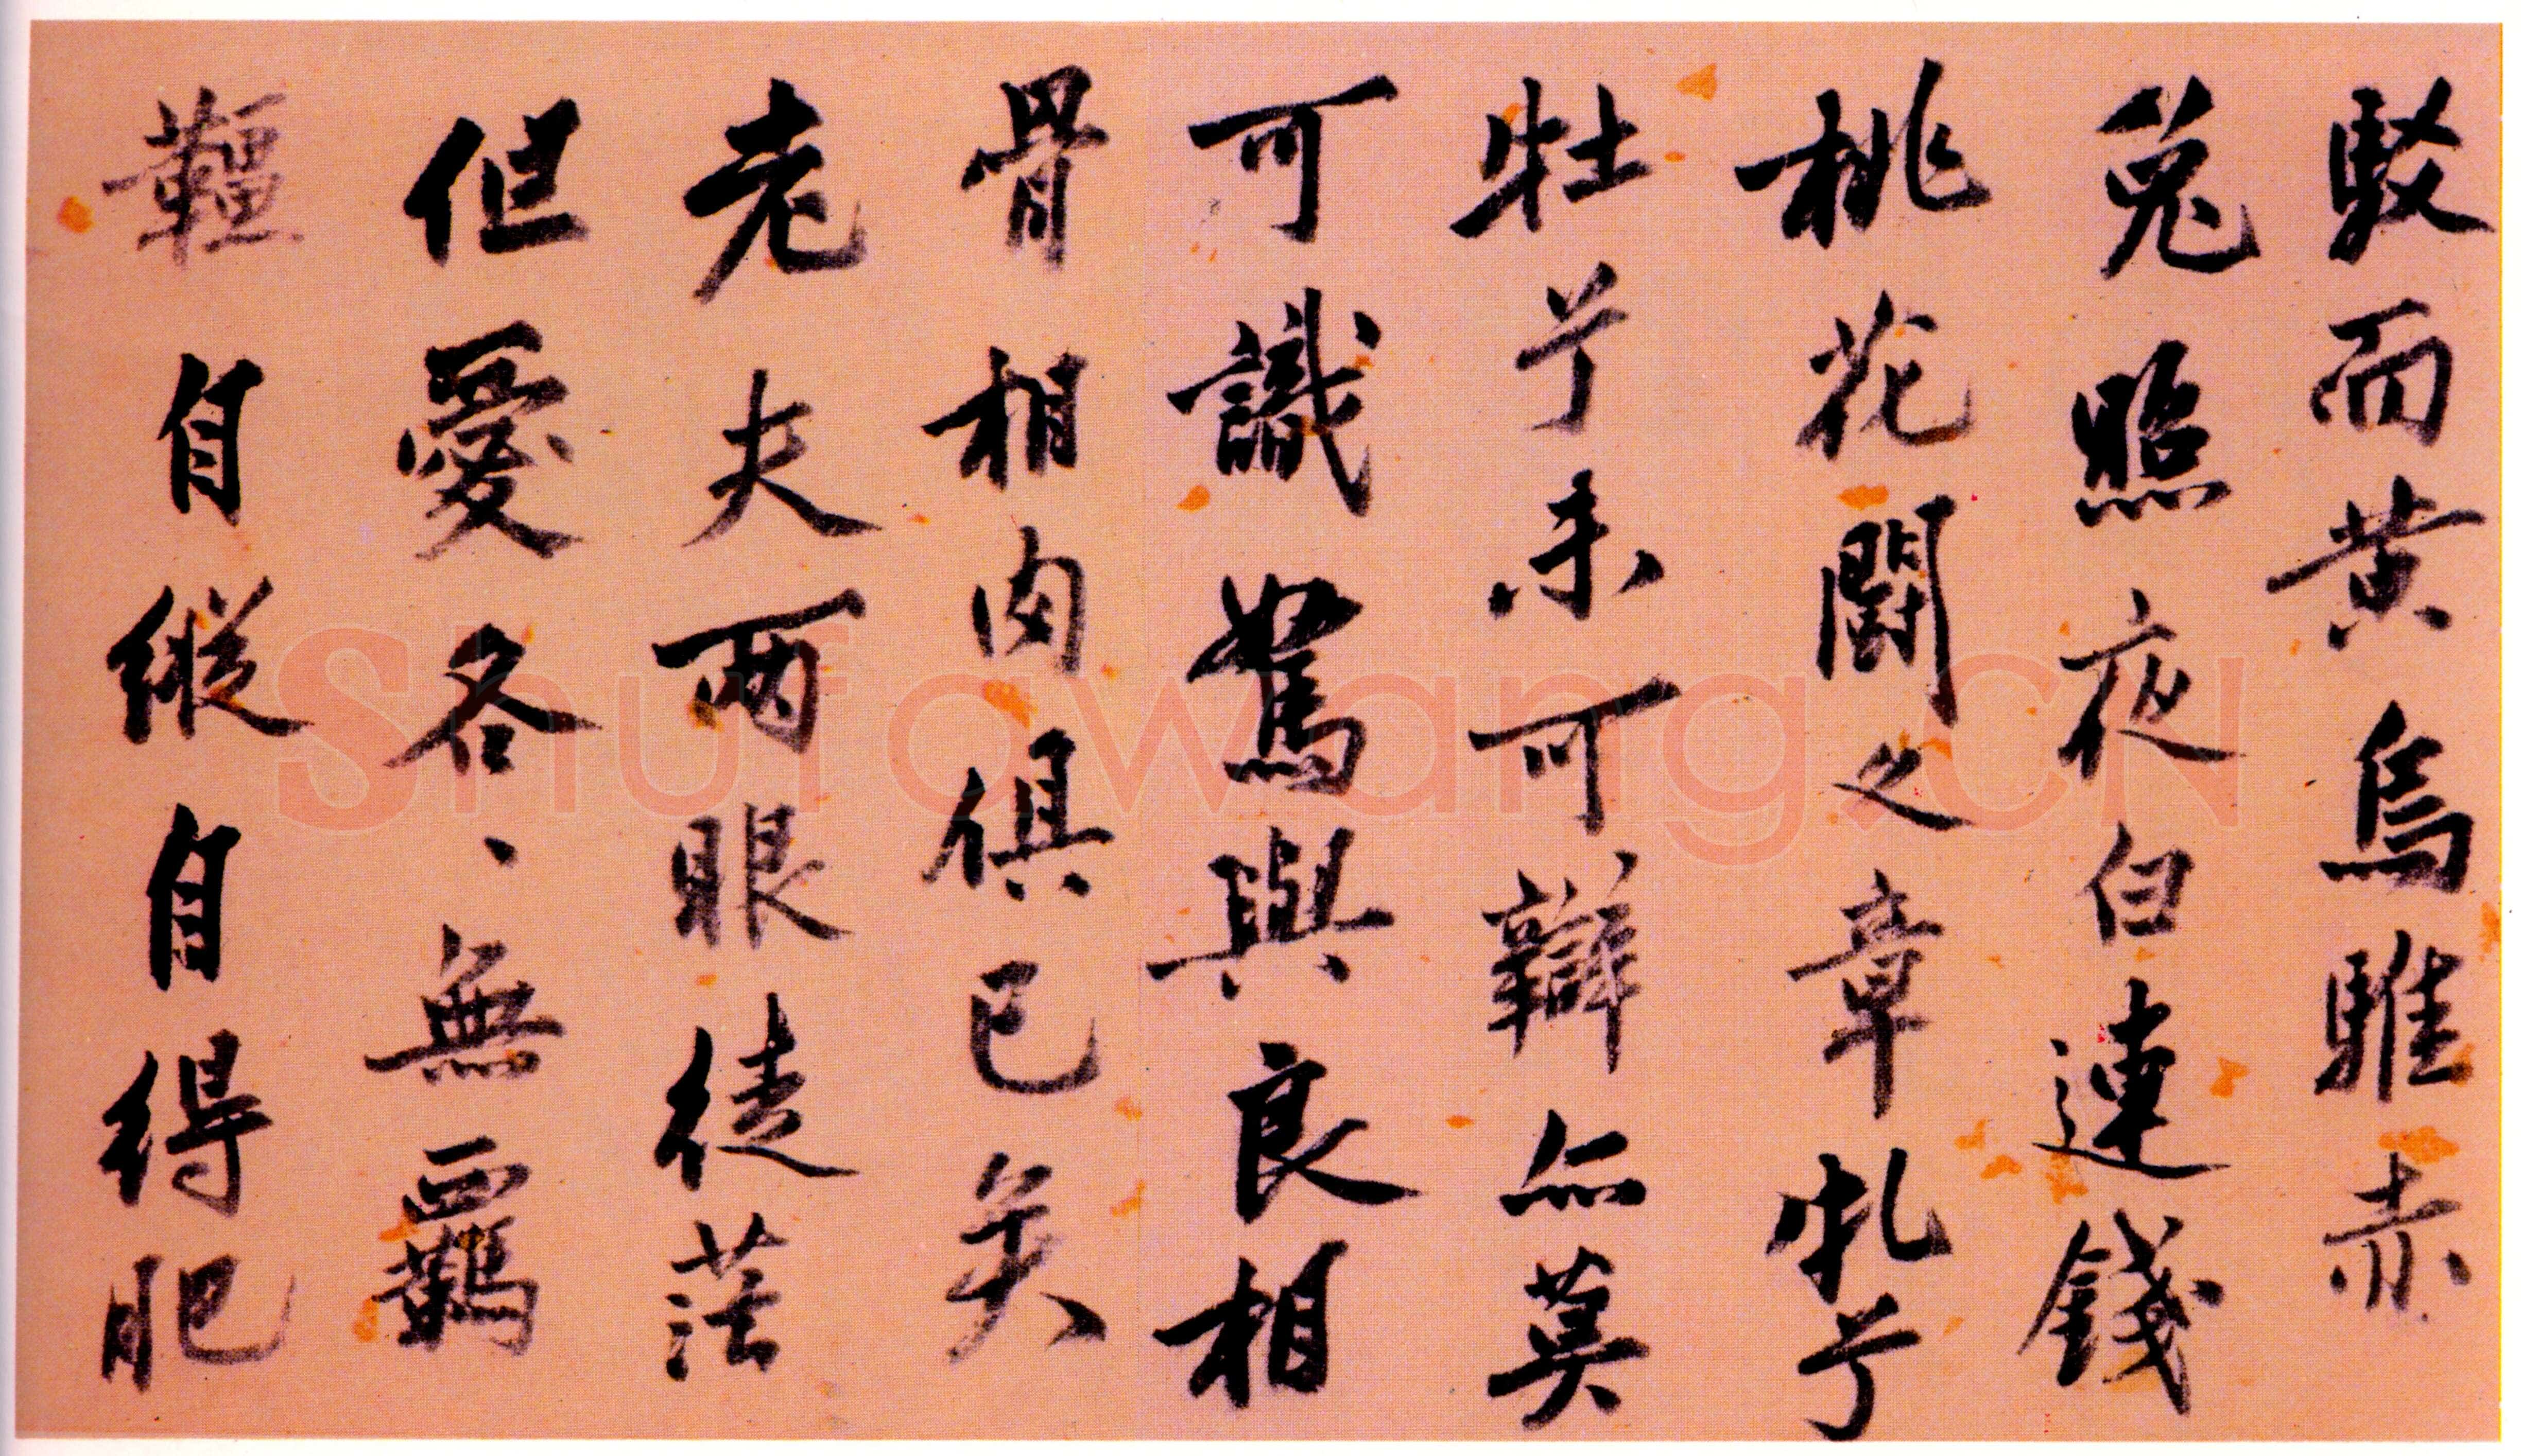 駁而黄烏騅赤
兔照夜白連錢
桃花闘之章牝兮
牡兮未可辯無莫
可識駑與良相
骨相肉俱已矣
老夫兩眼徒茫
但愛各、無羈
韁自縱自得肥
Shufawang.CN